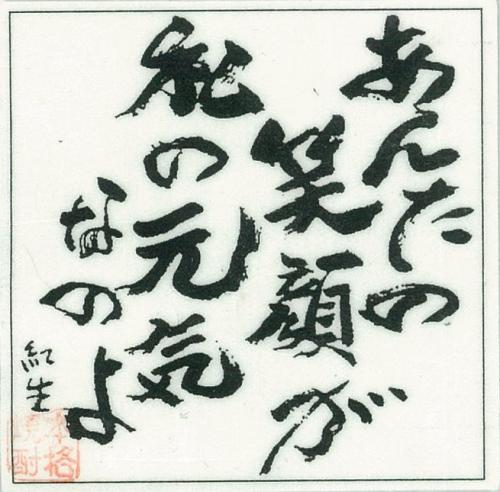 あんたの
笑顔が
私の元気
なのよ
紅生
本格
焼酎